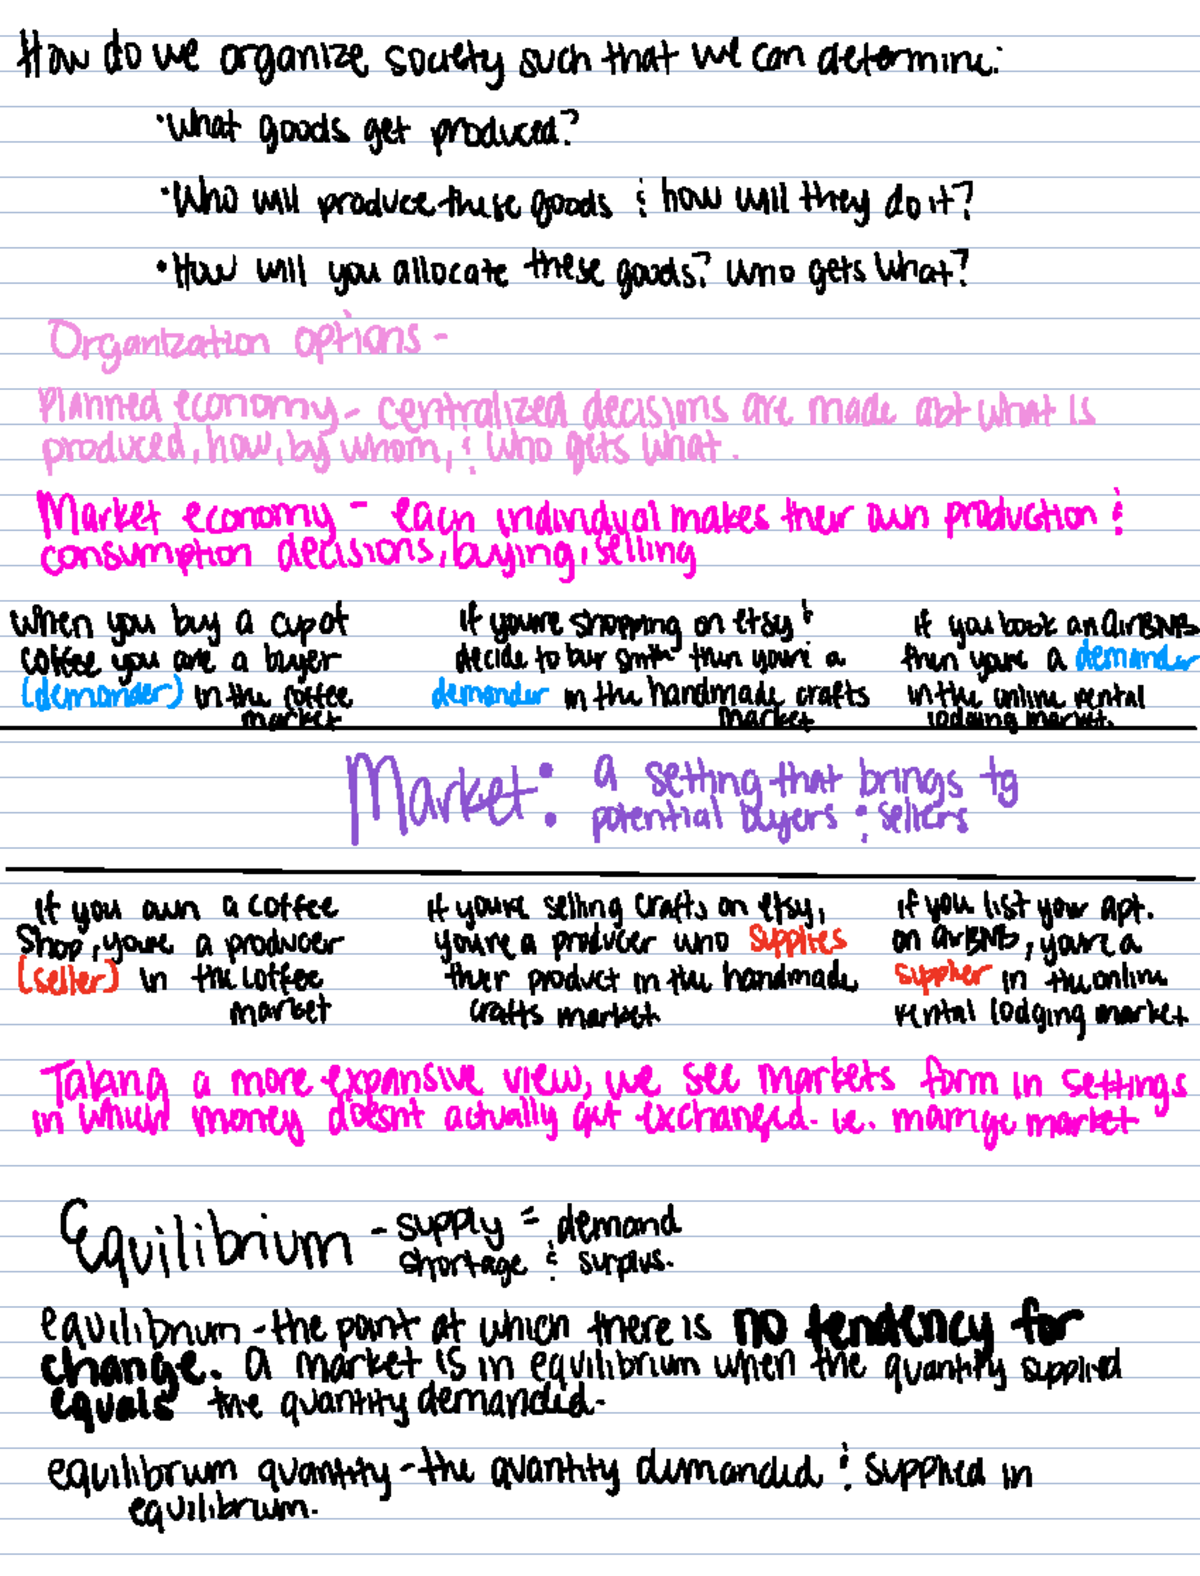 How do we organize society such that we can determine:
• What goods get produced?
• Who will produce these goods & how will they do it?
• How will you allocate these goods? Who gets what?
Organization options -
Planned economy - centralized decisions are made abt what is
produced, how, by whom, & who gets what.
Market economy - each individual makes their own production &
consumption decisions, buying, selling
When you buy a cup of
coffee you are a buyer
(demander) in the coffee
market
If youre shopping on etsy &
decide to buy smth then you're a
demander in the handmade crafts
market
If you book an airBNB
then youre a demander
in the online rental
lodging market.
Market: a setting that brings tg
potential buyers & sellers
If you own a coffee
Shop, youre a producer
(seller) in the coffee
market
If youre selling crafts on etsy,
you're a producer who supplies
their product in the handmade
crafts market.
if you list your apt.
on airBNB, youre a
supplier in the online
rental lodging market
Taking a more expansive view, we see markets form in settings
in which money doesnt actually get exchanged. ie. marrige market
Equilibrium - supply = demand
shortage & surplus.
equilibrium - the point at which there is no tendency for
change. a market is in equilibrium when the quantity supplied
equals the quantity demanded.
equilibrium quantity - the quantity demanded & supplied in
equilibrium.